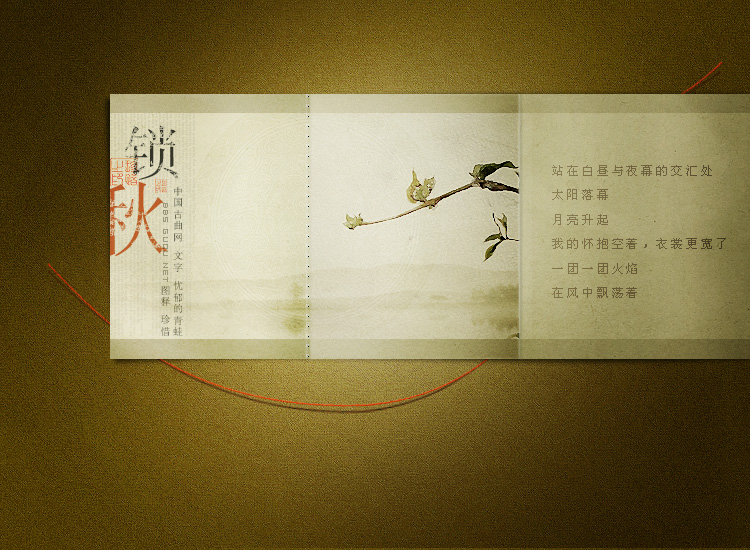 锁
秋
中国古曲网 文字 忧郁的青蛙
BBS GUQU NET 图释 珍惜
站在白昼与夜幕的交汇处
太阳落幕
月亮升起
我的怀抱空着，衣裳更宽了
一团一团火焰
在风中飘荡着